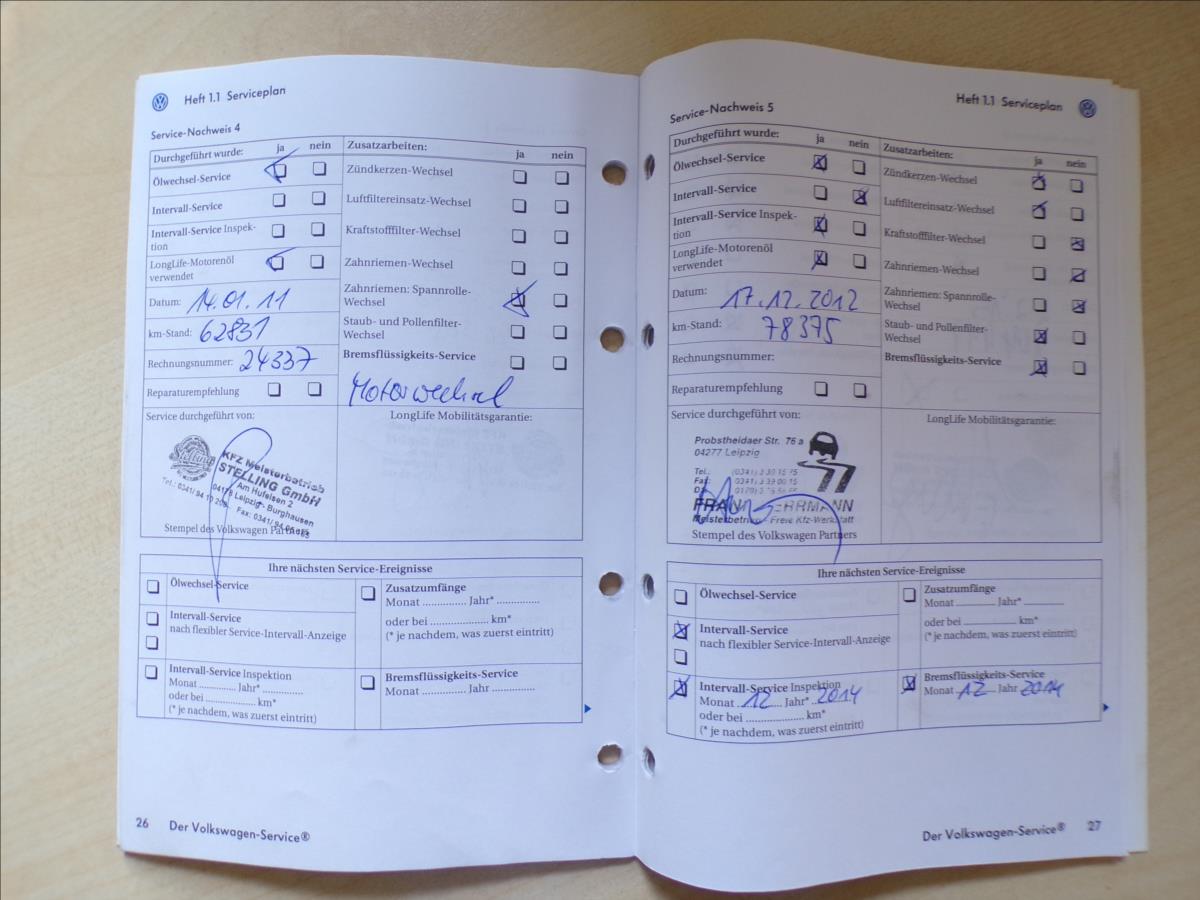 Heft 1.1 Serviceplan
Service-Nachweis 4
Durchgeführt wurde: ja nein
Ölwechsel-Service
Intervall-Service
Intervall-Service Inspek-
tion
LongLife-Motorenöl
verwendet
Datum: 14.01.11
km-Stand: 62831
Rechnungsnummer: 24337
Reparaturempfehlung
Zusatzarbeiten: ja nein
Zündkerzen-Wechsel
Luftfiltereinsatz-Wechsel
Kraftstofffilter-Wechsel
Zahnriemen-Wechsel
Zahnriemen: Spannrolle-
Wechsel
Staub- und Pollenfilter-
Wechsel
Bremsflüssigkeits-Service
Motorwechsel
Service durchgeführt von:
LongLife Mobilitätsgarantie:
Stelling
KFZ Meisterbetrieb
STELLING GmbH
Am Hufeisen 2
04178 Leipzig - Burghausen
Stempel des Volkswagen Partners
Ihre nächsten Service-Ereignisse
Ölwechsel-Service
Intervall-Service
nach flexibler Service-Intervall-Anzeige
Intervall-Service Inspektion
Monat .............. Jahr* ..............
oder bei ...................... km*
(* je nachdem, was zuerst eintritt)
Zusatzumfänge
Monat .............. Jahr* ..............
oder bei ...................... km*
(* je nachdem, was zuerst eintritt)
Bremsflüssigkeits-Service
Monat .............. Jahr ..............
26 Der Volkswagen-Service®
Heft 1.1 Serviceplan
Service-Nachweis 5
Durchgeführt wurde: ja nein
Ölwechsel-Service
Intervall-Service
Intervall-Service Inspek-
tion
LongLife-Motorenöl
verwendet
Datum: 17.12.2012
km-Stand: 78375
Rechnungsnummer:
Reparaturempfehlung
Zusatzarbeiten: ja nein
Zündkerzen-Wechsel
Luftfiltereinsatz-Wechsel
Kraftstofffilter-Wechsel
Zahnriemen-Wechsel
Zahnriemen: Spannrolle-
Wechsel
Staub- und Pollenfilter-
Wechsel
Bremsflüssigkeits-Service
Service durchgeführt von:
LongLife Mobilitätsgarantie:
Probstheidaer Str. 76 a
04277 Leipzig
Tel.:
Fax:
Meisterbetrieb - Freie Kfz-Werkstatt
Stempel des Volkswagen Partners
Ihre nächsten Service-Ereignisse
Ölwechsel-Service
Intervall-Service
nach flexibler Service-Intervall-Anzeige
Intervall-Service Inspektion
Monat 12 Jahr* 2014
oder bei ...................... km*
(* je nachdem, was zuerst eintritt)
Zusatzumfänge
Monat .............. Jahr* ..............
oder bei ...................... km*
(* je nachdem, was zuerst eintritt)
Bremsflüssigkeits-Service
Monat 12 Jahr 2014
Der Volkswagen-Service® 27